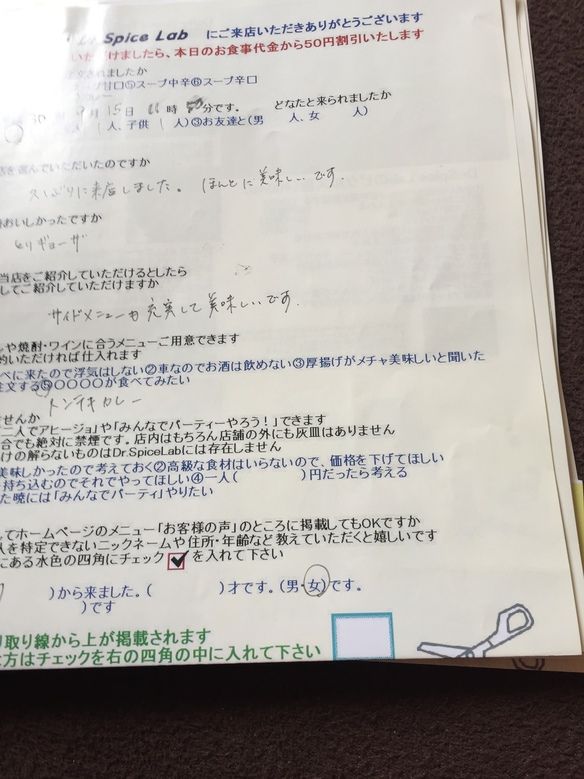 Dr. Spice Lab にご来店いただきありがとうございます
いただけましたら、本日のお食事代金から50円割引いたします
されましたか
スープ甘口⑤スープ中辛⑥スープ辛口
月15日 時 分です。 どなたと来られましたか
人、子供 1 人)③お友達と(男 人、女 人)
店を選んでいただいたのですか
久しぶりに来店しました。 ほんとに美味しいです。
おいしかったですか
とりギョーザ
当店をご紹介していただけるとしたら
してご紹介していただけますか
サイドメニューも充実して美味しいです。
や焼酎・ワインに合うメニューご用意できます
いただければ仕入れます
べに来たので浮気はしない②車なのでお酒は飲めない③厚揚げがメチャ美味しいと聞いた
注文する⑤〇〇〇〇が食べてみたい
トンテキカレー
ませんか
二人でアヒージョ」や「みんなでパーティーやろう!」できます
合でも絶対に禁煙です。店内はもちろん店舗の外にも灰皿はありません
けの解らないものはDr.SpiceLabには存在しません
美味しかったので考えておく②高級な食材はいらないので、価格を下げてほしい
持ち込むのでそれでやってほしい④一人( )円だったら考える
た暁には「みんなでパーティ」やりたい
してホームページのメニュー「お客様の声」のところに掲載してもOKですか
人を特定できないニックネームや住所・年齢など教えていただくと嬉しいです
にある水色の四角にチェック を入れて下さい
)から来ました。( )才です。(男・女)です。
)です
り取り線から上が掲載されます
方はチェックを右の四角の中に入れて下さい